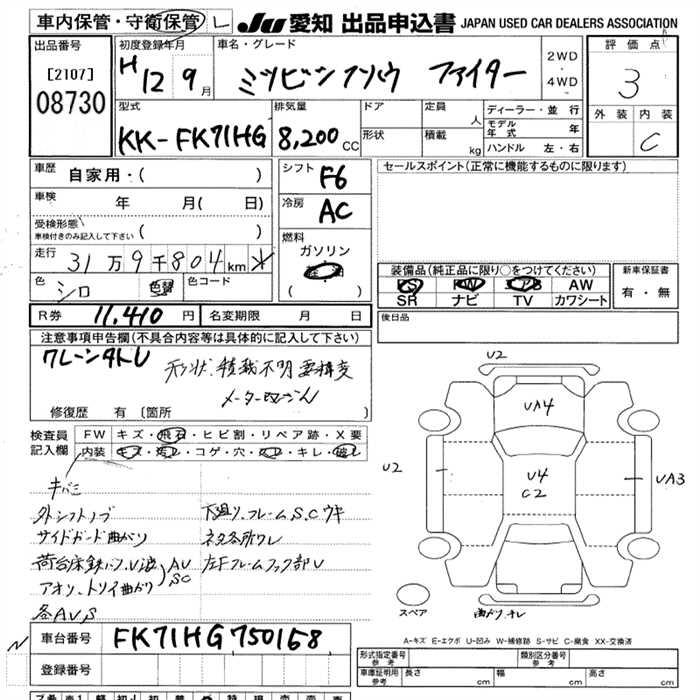 車内保管・守衛保管 L JU 愛知 出品申込書 JAPAN USED CAR DEALERS ASSOCIATION
出品番号
[2107]
08730
初度登録年月
H 12 9月
車名・グレード
ミツビシフソウ ファイター
2WD
・
4WD
評価点
3
外装 内装
C
型式
KK-FK71HG
排気量
8,200cc
ドア
形状
定員
人
積載
kg
ディーラー・並行
モデル年式 年
ハンドル 左・右
車歴
自家用・( )
車検
年 月( 日)
受検形態
車検付きのみ記入して下さい
( )
走行
31万9千804km
色
シロ 色替
色コード
シフト
F6
冷房
AC
燃料
ガソリン
( )
セールスポイント(正常に機能するものに限ります)
装備品(純正品に限り○をつけてください)
PS PW エアB AW
SR ナビ TV カワシート
新車保証書
有・無
R券 11,410円
名変期限 月 日
後日品
注意事項申告欄(不具合内容等は具体的に記入して下さい)
クレーン4tU
形状、積載不明 要構変
修復歴 有 [箇所
検査員記入欄
FW キズ・飛石・ヒビ割・リペア跡・X要
内装 キズ・汚レ・コゲ・穴・スレ・キレ・破レ
キバミ
外シフトノブ
サイドガード曲がり
アオリ、トリイ曲がり
各AVS
AV
SC
下廻り、フレームS.Cウキ
ネタ各所ワレ
左Fフレームフック部V
U2
UA4
U2
U4
C2
UA3
スペア
曲がり、キレ
A-キズ E-エクボ U-凹み W-補修跡 S-サビ C-腐食 XX-交換済
車台番号 FK71HG750158
登録番号
形式指定番号
参考
類別区分番号
参考
車庫証明用
参考
長さ cm 幅 cm 高さ cm